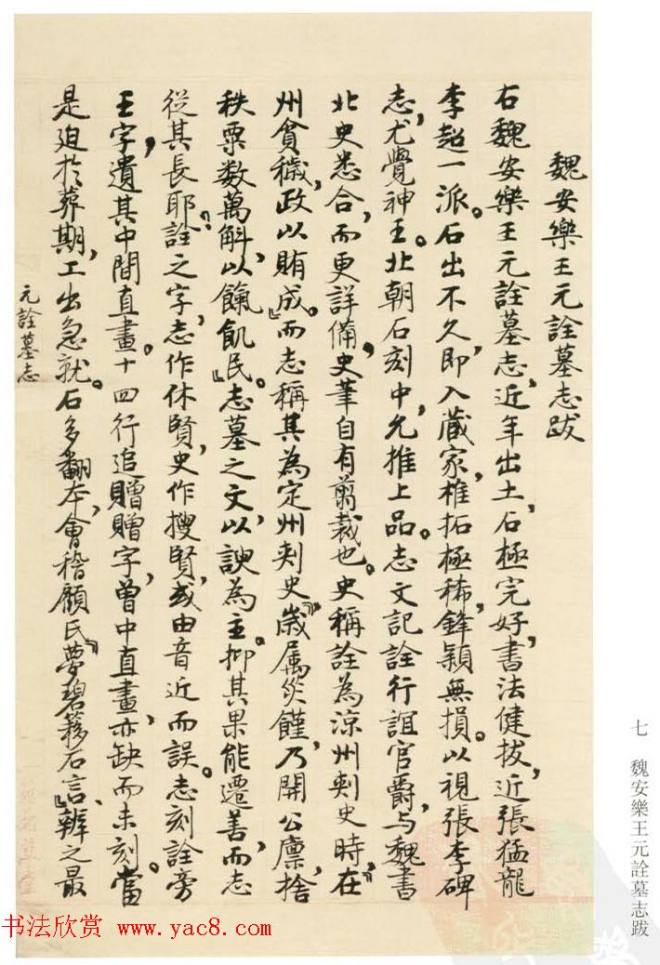 魏安樂王元詮墓志跋
右魏安樂王元詮墓志，近年出土，石極完好，書法健拔，近張猛龍
李超一派。石出不久即入藏家，椎拓極稀，鋒穎無損。以視張李碑
志，尤覺神王。北朝石刻中，允推上品。志文記詮行誼官爵，与魏書
北史悉合，而更詳備，史筆自有剪裁也。史稱詮為涼州刺史時，『在
州貪穢，政以賄成。』而志稱其為定州刺史，『歲属灾饉，乃開公廪，捨
秩粟数萬斛，以餼飢民。』志墓之文，以諛為主。抑其果能遷善而志
從其長耶。詮之字，志作休賢，史作搜賢，或由音近而誤。志刻詮旁
王字，遺其中間直畫。十四行追贈贈字，曾中直畫亦缺而未刻。當
是迫於葬期，工出急就。石多翻本，會稽顧氏『夢碧簃石言』辨之最
元詮墓志
七 魏安樂王元詮墓志跋
书法欣赏 www.yac8.com